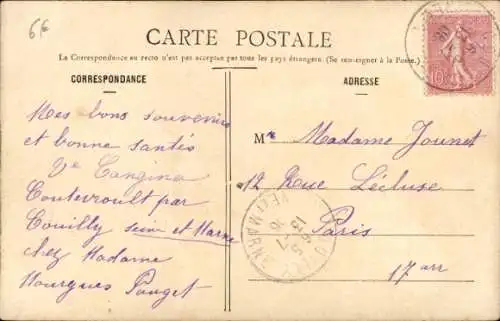 66
CARTE POSTALE
La Correspondance au recto n'est pas acceptée par tous les pays étrangers. (Se renseigner à la Poste.)
CORRESPONDANCE
ADRESSE
Mes bons souvenirs
et bonne santés
Vve Cangina
Coutevroult par
Couilly Seine et Marne
chez Madame
Mourgues Pouget
M Madame Jounet
12 Rue Lécluse
Paris
17 arr
10
ET MARNE